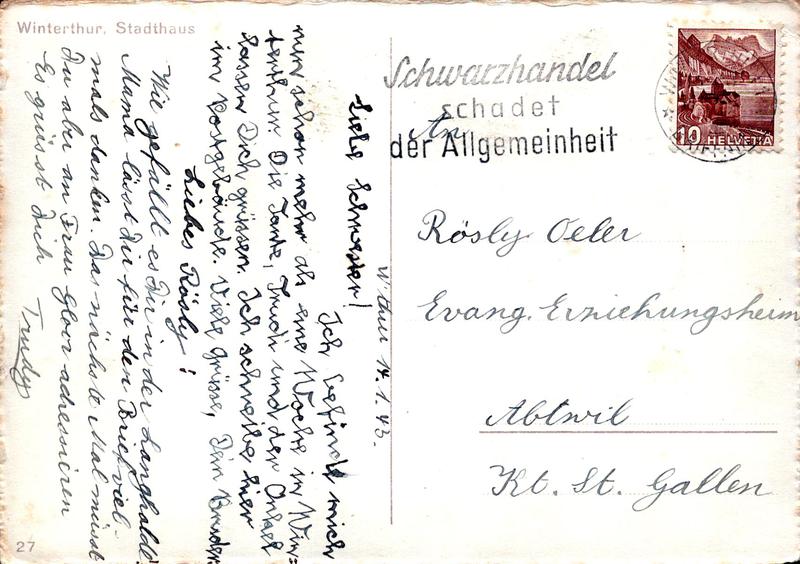 Winterthur, Stadthaus
Schwarzhandel
schadet
der Allgemeinheit
10 HELVETIA
An
Rösly Oeler
Evang. Erziehungsheim
Abtwil
Kt. St. Gallen
W'thur 14.1.43.
Liebe Schwester!
Ich befinde mich
nun schon mehr als eine Woche in Win=
terthur. Die Tante, Trudi und der Onkel
lassen Dich grüssen. Ich schreibe hier
im Postgebäude. Viele Grüsse, Dein Bruder.
Liebes Rösly!
Wie gefällt es Dir in der Langhalde?
Mama lässt Dir für den Brief viel-
mals danken. Das nächste Mal müsst
Du aber an Frau Gloor adressieren
Es grüsst Dich Trudy
27